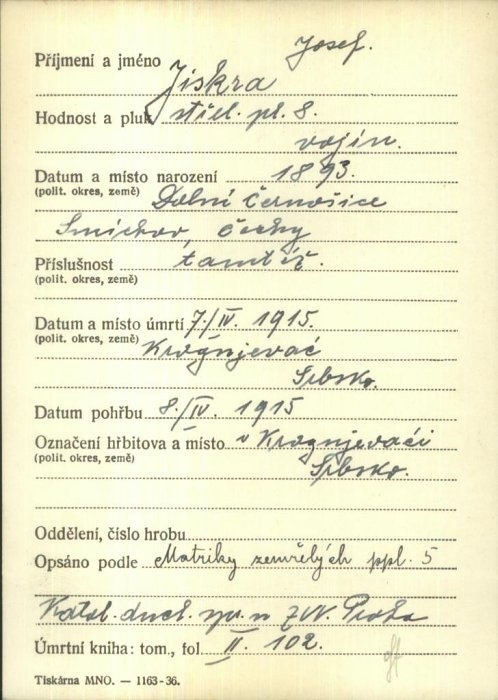 Josef.
Příjmení a jméno Jiskra
Hodnost a pluk střel. pl. 8.
vojín.
Datum a místo narození 1893.
(polit. okres, země) Dolní Černošice
Smíchov, Čechy
Příslušnost tamtéž.
(polit. okres, země)
Datum a místo úmrtí 7./IV. 1915.
(polit. okres, země) Kragujevać
Srbsko.
Datum pohřbu 8./IV. 1915
Označení hřbitova a místo v Kragujevaći
(polit. okres, země) Srbsko.
Oddělení, číslo hrobu
Opsáno podle Matriky zemřelých ppl. 5
Katol. duch. spr. n ZVV. Praha
Úmrtní kniha: tom., fol. II. 102.
Tiskárna MNO. — 1163-36.